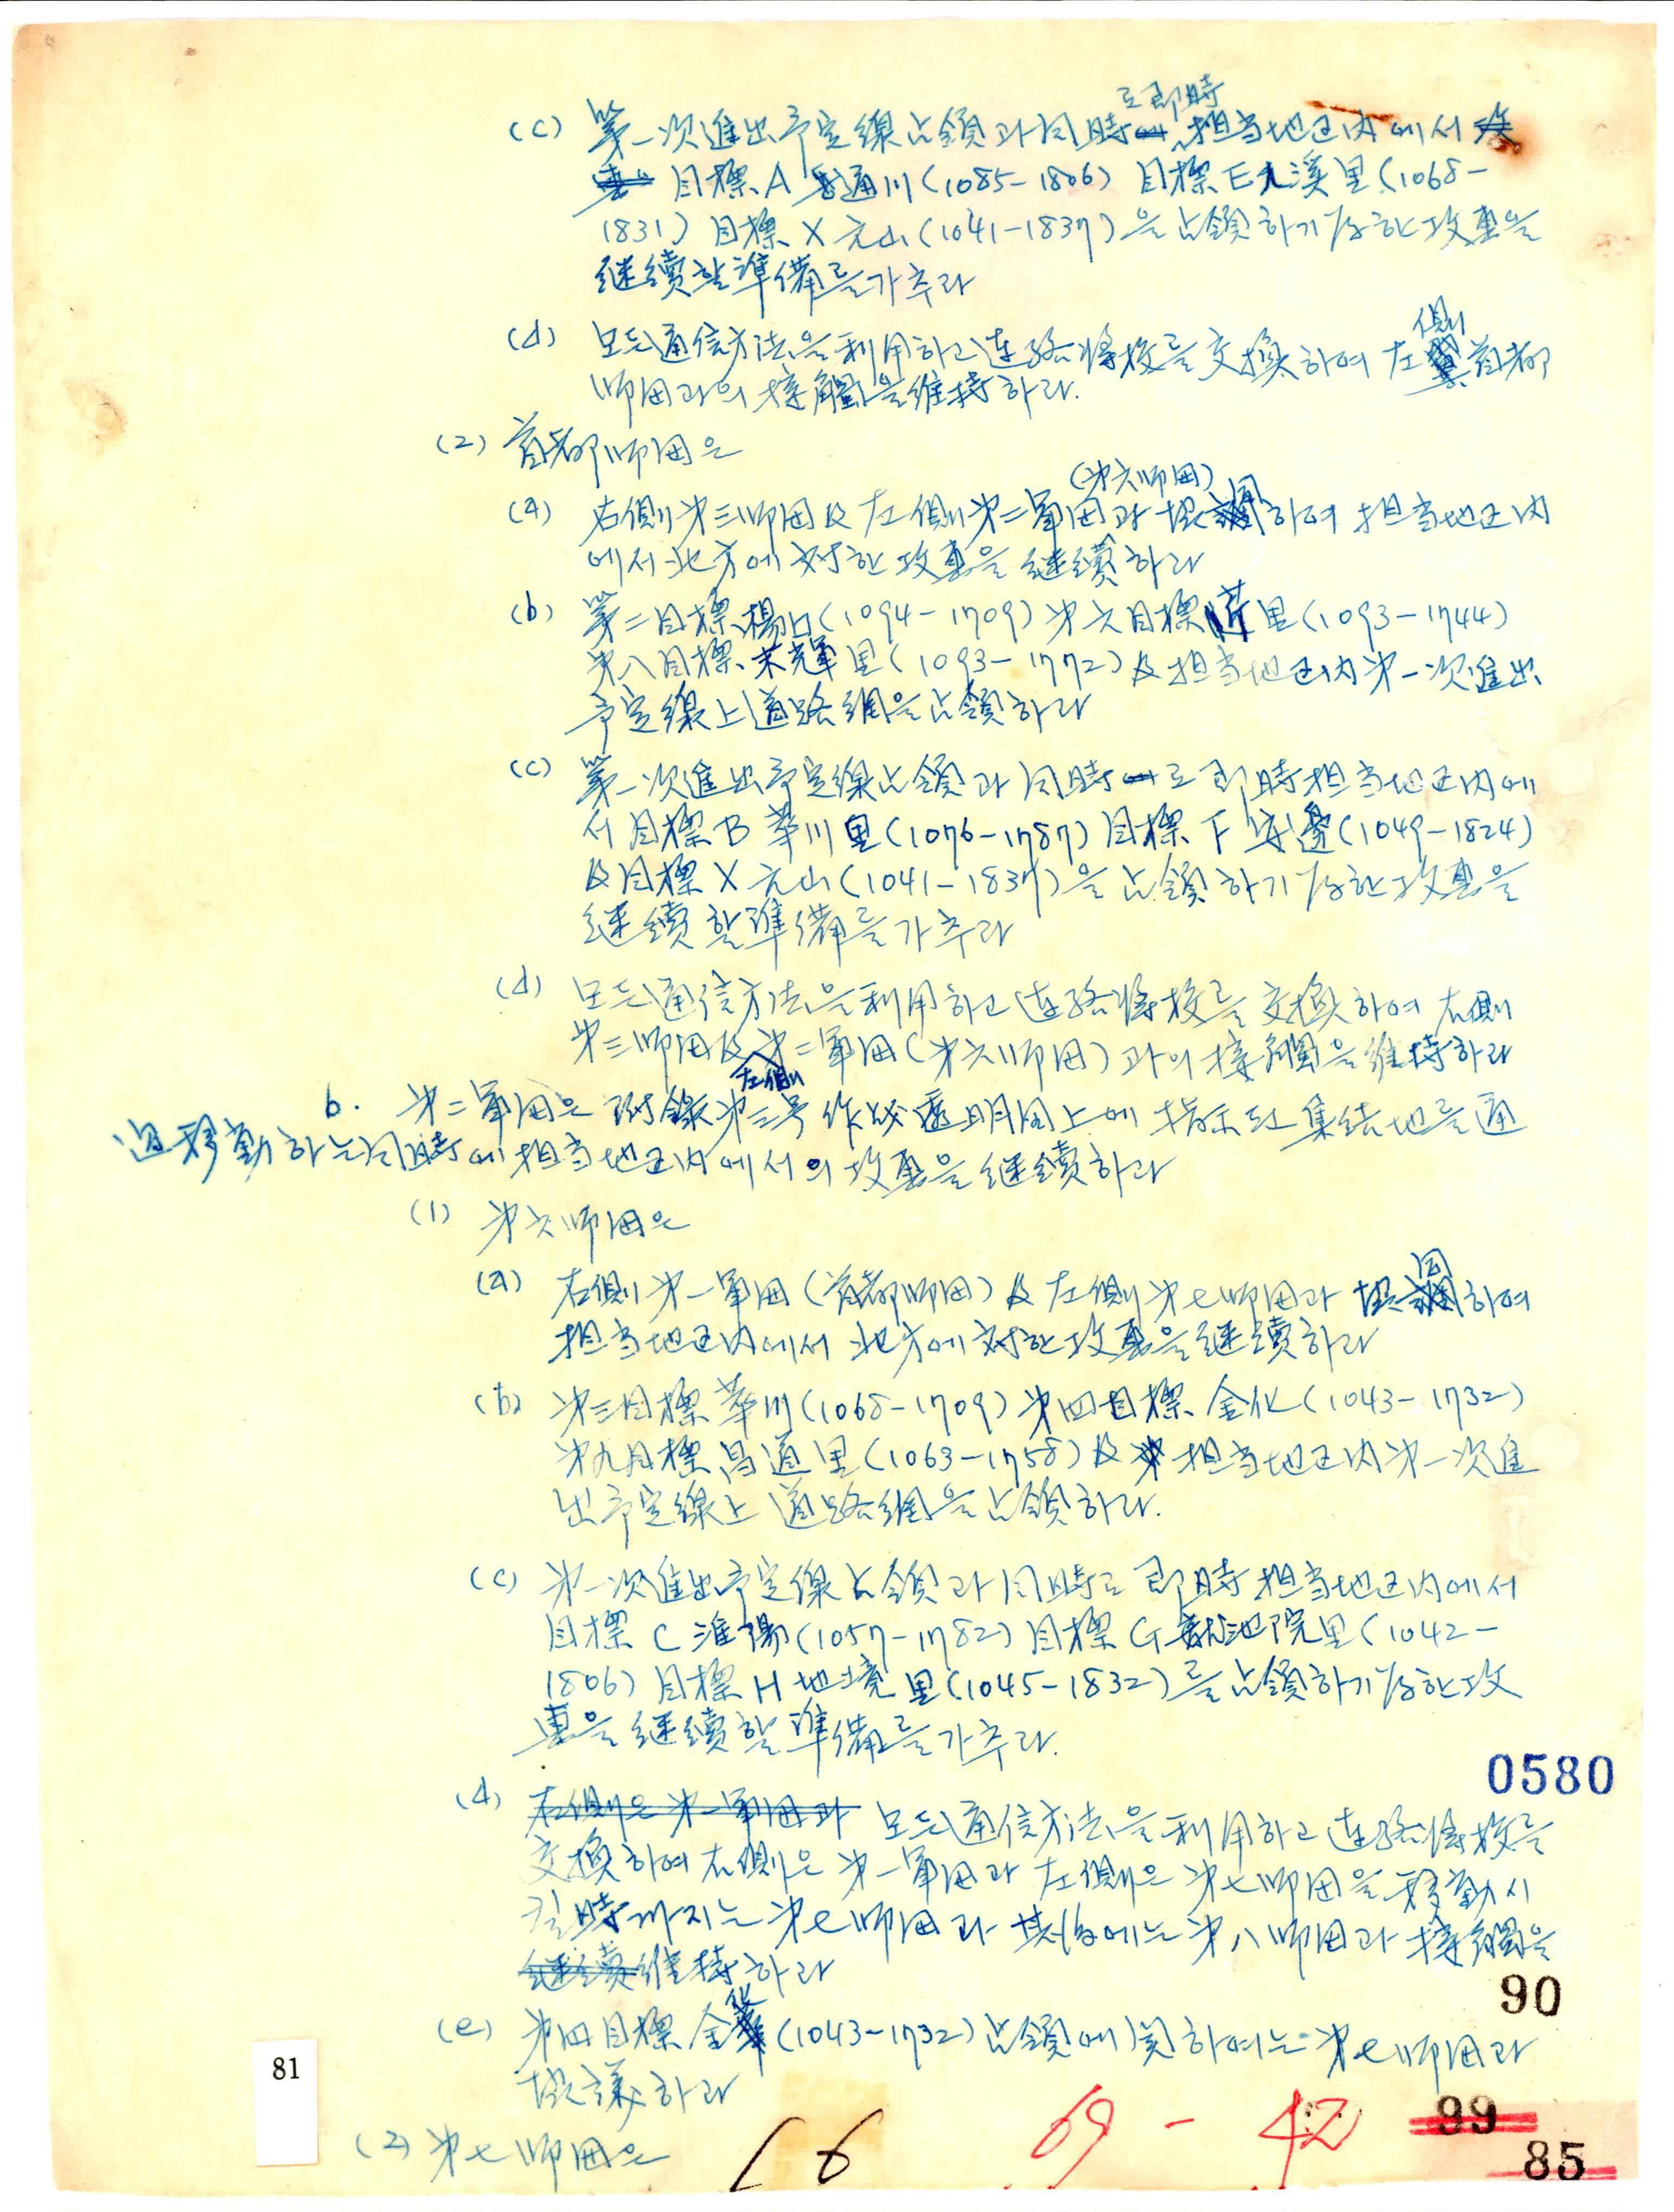 로 即時
(c) 第一次進出予定線占領과 同時에 担当地区内에서 攻
擊 目標 A 通川(1085-1806) 目標 E 九溪里(1068-
1831) 目標 X 元山(1041-1837)을 占領하기 위한 攻擊을
継續할 準備를 가추라
側
(d) 모든 通信方法을 利用하고 連絡將校를 交換하여 左翼 首都
師団과의 接觸을 維持하라.
(2) 首都師団은
(第六師団)
(a) 右側 第三師団 及 左側 第二軍団과 協調하여 担当地区内
에서 北方에 対한 攻擊을 継續하라
(b) 第二目標 楊口(1094-1709) 第六目標 里(1093-1744)
第八目標 末輝里(1093-1772) 及 担当地区内 第一次進出
予定線上 道路網을 占領하라
(c) 第一次進出予定線占領과 同時에로 即時 担当地区内에
서 目標 B 華川里(1076-1787) 目標 F 安邊(1049-1824)
及 目標 X 元山(1041-1837)을 占領하기 위한 攻擊을
継續할 準備를 가추라
(d) 모든 通信方法을 利用하고 連絡將校를 交換하여 右側
第三師団 及 第二軍団(第六師団)과의 接觸을 維持하라
左側
b. 第二軍団은 附錄 第三号 作战透明図上에 指示된 集結地를 通
過 移動하는 同時에 担当地区内에서의 攻擊을 継續하라
(1) 第六師団은
(a) 右側 第一軍団(首都師団) 及 左側 第七師団과 協調하여
担当地区内에서 北方에 対한 攻擊을 継續하라
(b) 第三目標 華川(1068-1709) 第四目標 金化(1043-1732)
第九目標 昌道里(1063-1758) 及 第 担当地区内 第一次進
出予定線上 道路網을 占領하라.
(c) 第一次進出予定線占領과 同時로 即時 担当地区内에서
目標 C 淮陽(1057-1782) 目標 G 新池院里(1042-
1806) 目標 H 地境里(1045-1832)를 占領하기 위한 攻
擊을 継續할 準備를 가추라.
(d) 右側은 第一軍団과 모든 通信方法을 利用하고 連絡將校를
交換하여 右側은 第一軍団과 左側은 第七師団을 移動시
킬 時까지는 第七師団과 其後에는 第八師団과 接觸을
継續維持하라
化
(e) 第四目標 金華(1043-1732) 占領에 関하여는 第七師団과
協議하라
(2) 第七師団은
0580
90
81
16
69 - 42
99
85